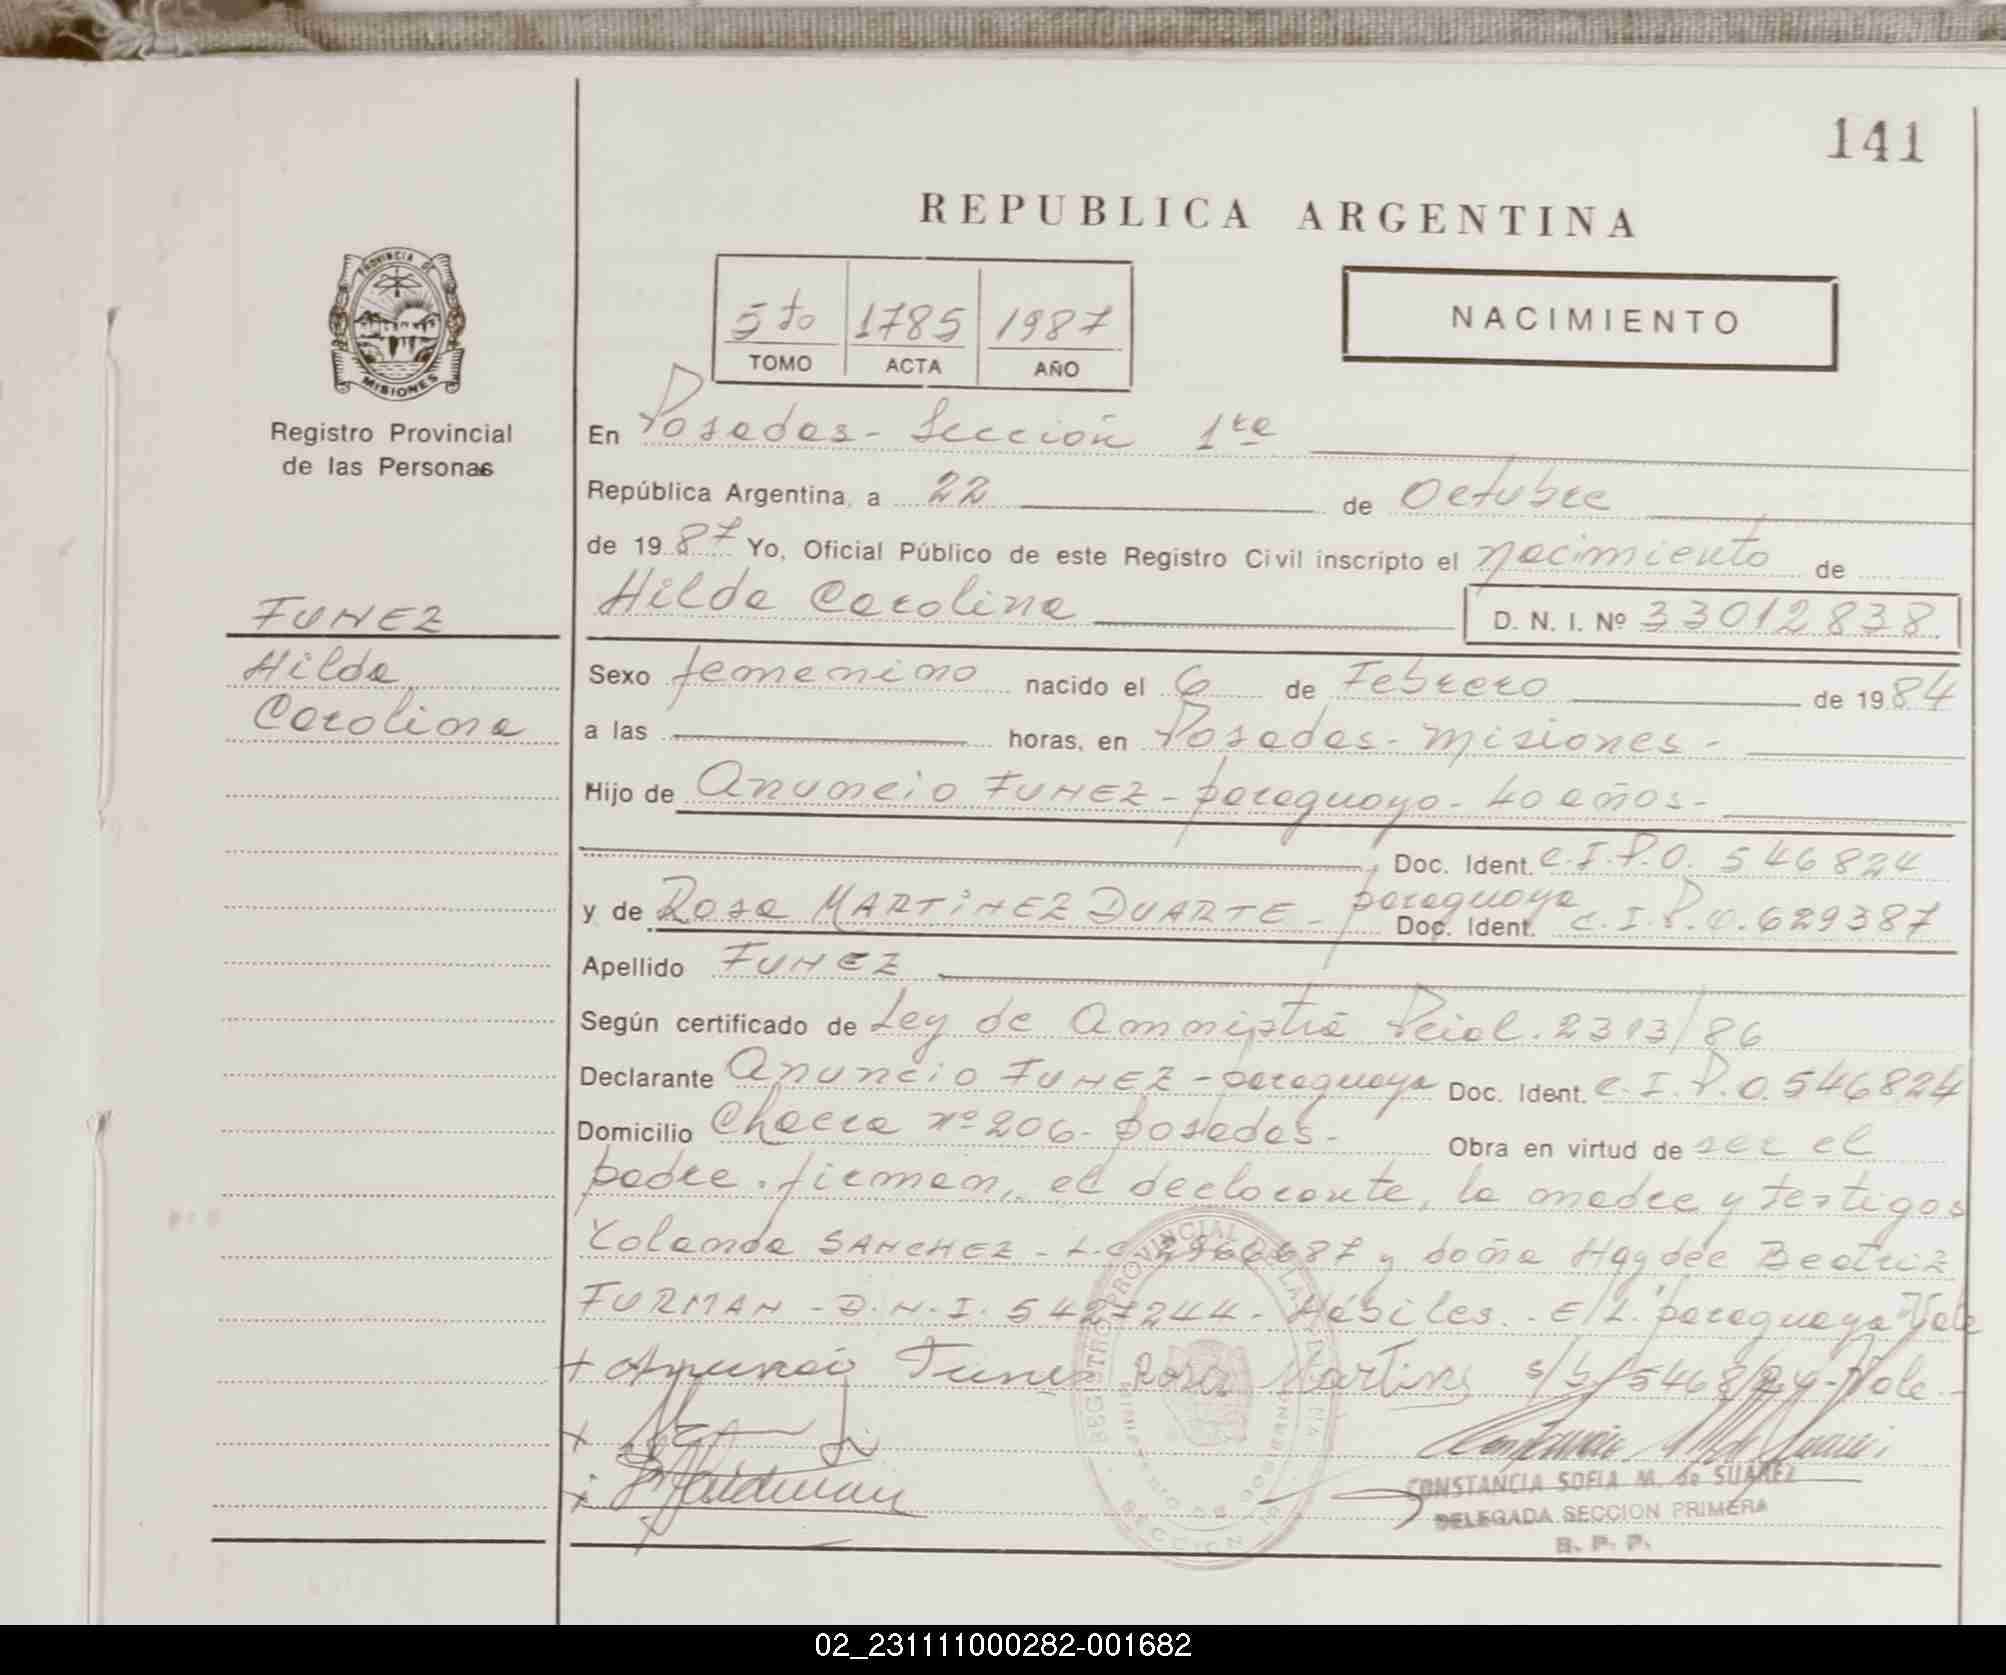 141
REPUBLICA ARGENTINA
5to 1785 1987
TOMO ACTA AÑO
NACIMIENTO
PROVINCIA DE
MISIONES
Registro Provincial
de las Personas
FUNEZ
Hilda
Carolina
En Posadas - Sección 1ra
República Argentina, a 22 de Octubre
de 1987 Yo, Oficial Público de este Registro Civil inscripto el nacimiento de
Hilda Carolina D. N. I. Nº 33012838
Sexo femenino nacido el 6 de Febrero de 1984
a las horas, en Posadas - Misiones -
Hijo de Anuncio FUNEZ - paraguayo - 40 años -
Doc. Ident. C.I.P.O. 546824
y de Rosa MARTINEZ DUARTE - paraguaya Doc. Ident. C.I.P.O. 629387
Apellido FUNEZ
Según certificado de Ley de Amnistia Pcial. 2313/86
Declarante Anuncio FUNEZ - paraguaya Doc. Ident. C.I.P.O. 546824
Domicilio Chacra nº 206 - Posadas - Obra en virtud de ser el
padre. firman, el declarante, la madre y testigos
Yolanda SANCHEZ - L.C. 2966687 y doña Haydée Beatriz
FURMAN - D.N.I. 5427244 - Hábiles. - E/L. "paraguaya" Vale
+ Anuncio Funez Rosa Martinez s/b/546824 - Vale -
CONSTANCIA SOFIA M. de SUAREZ
DELEGADA SECCION PRIMERA
R. P. P.
REGISTRO PROVINCIAL DE LAS PERSONAS
MINISTERIO DE GOBIERNO
SECCION 1ª
02_231111000282-001682